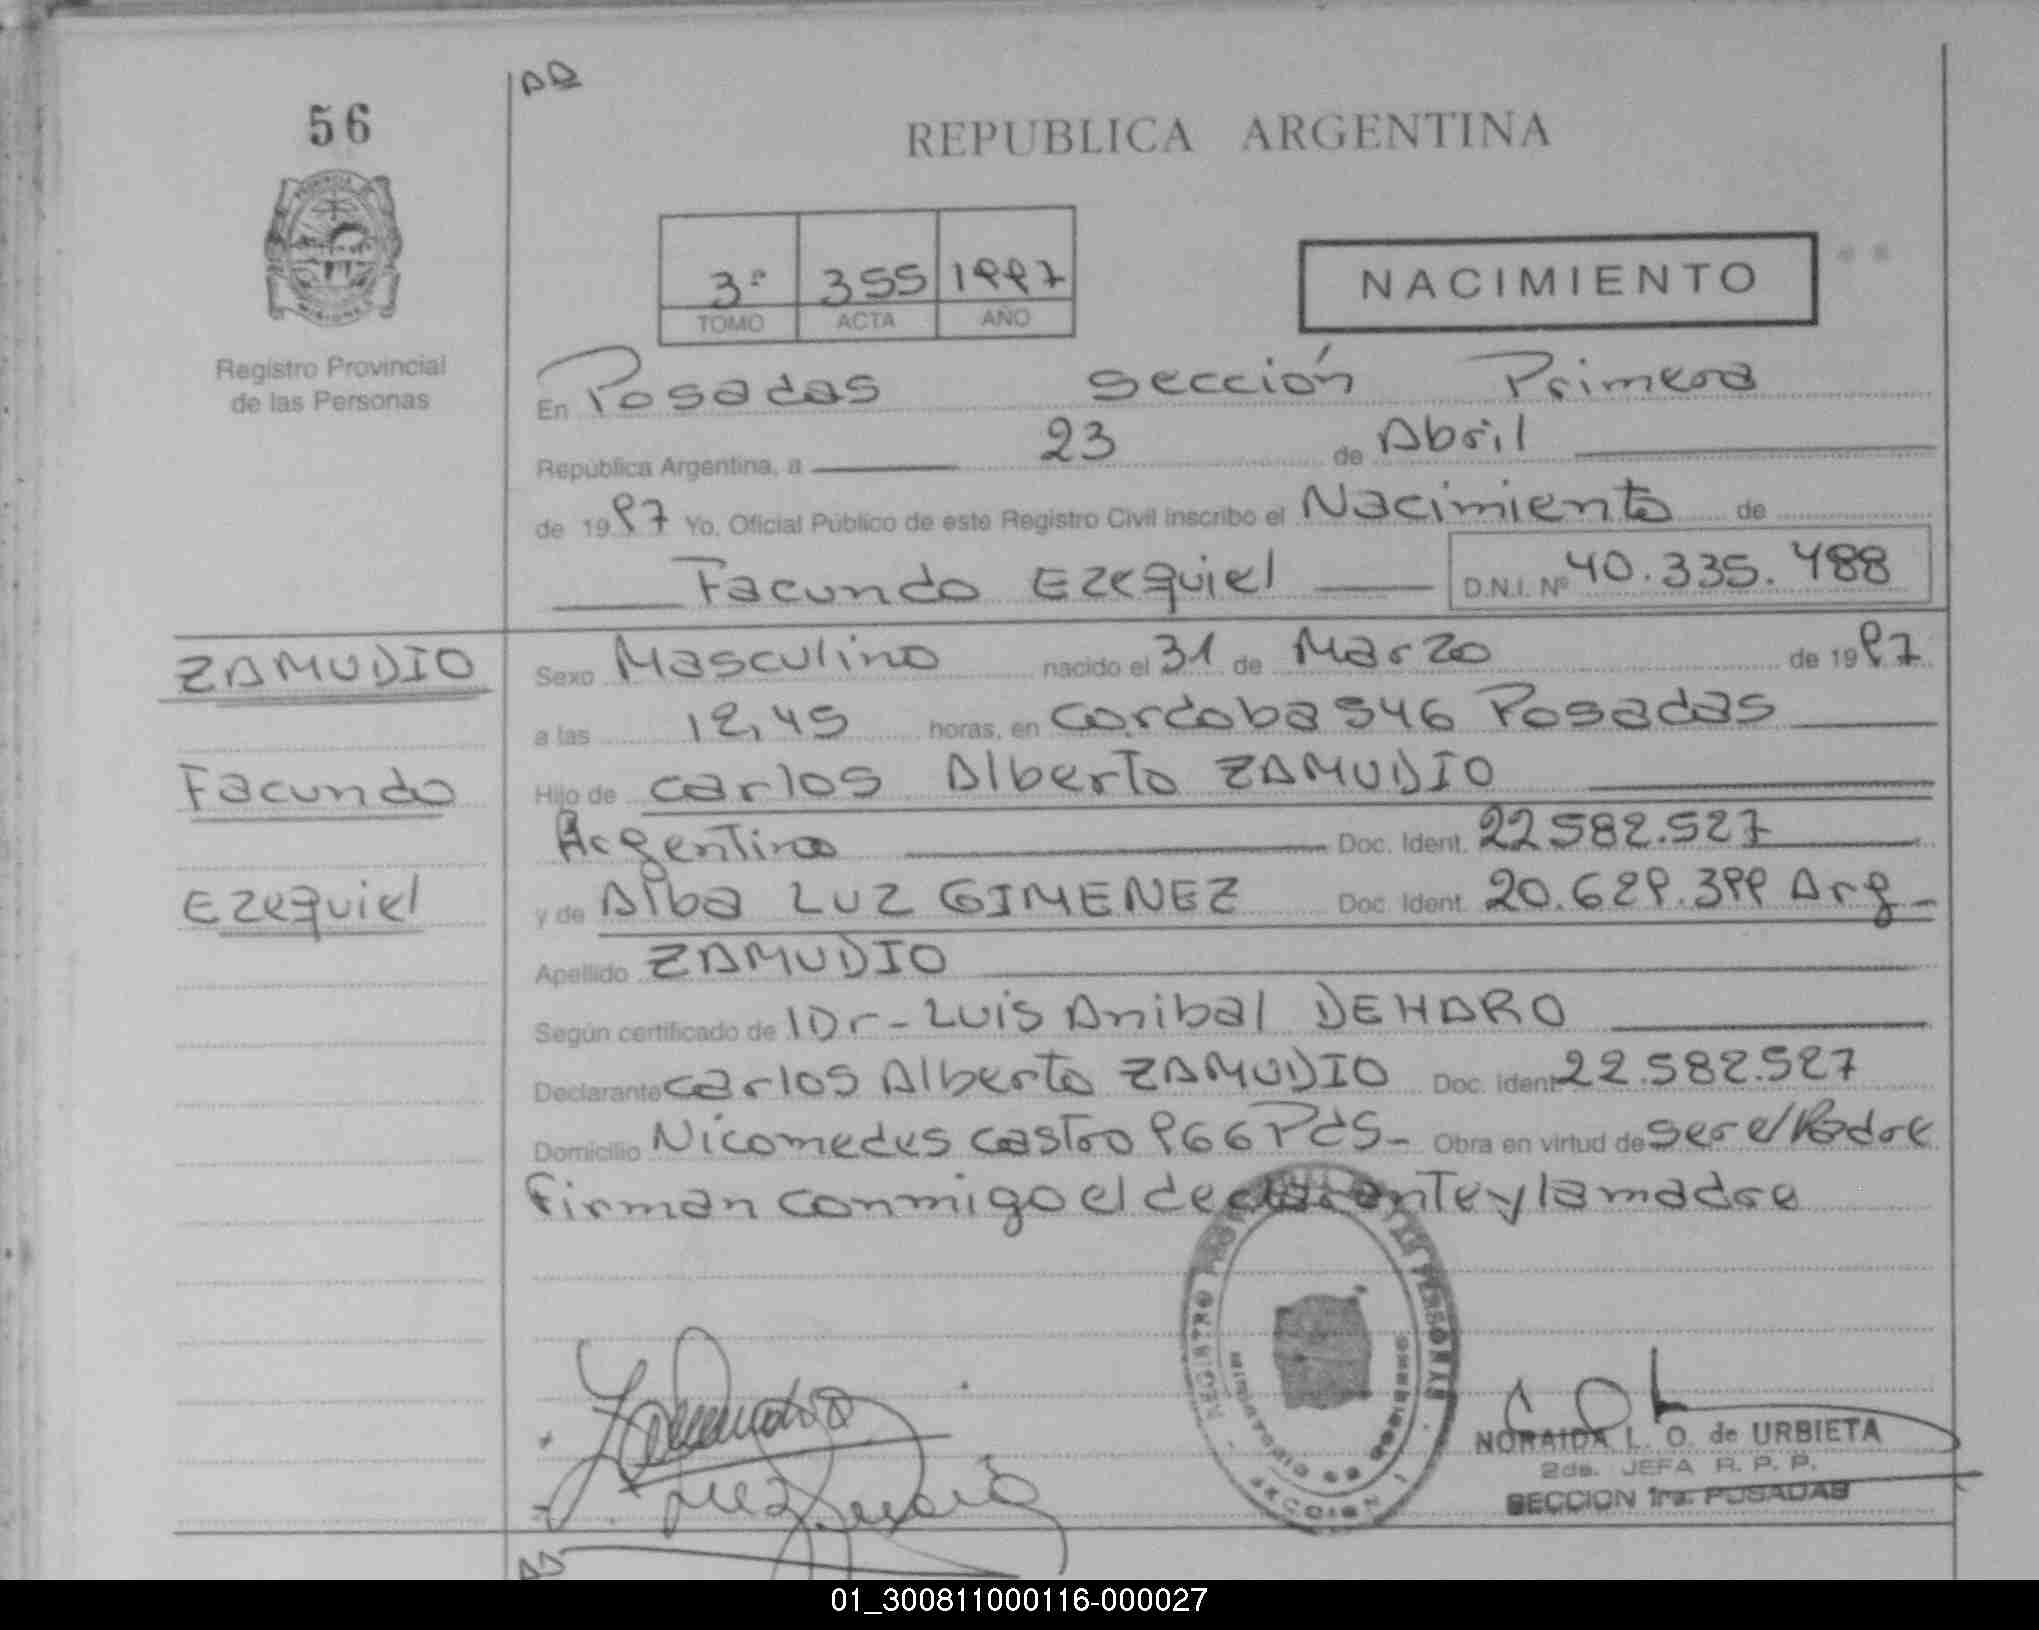 56
REPUBLICA ARGENTINA
3º 355 1997
TOMO ACTA AÑO
NACIMIENTO
Registro Provincial
de las Personas
En Posadas sección Primera
República Argentina, a 23 de Abril
de 1997 Yo, Oficial Público de este Registro Civil inscribo el Nacimiento de
Facundo Ezequiel D.N.I. Nº 40.335.488
ZAMUDIO
Facundo
Ezequiel
Sexo Masculino nacido el 31 de Marzo de 1997
a las 12,45 horas, en Cordoba 546 Posadas
Hijo de Carlos Alberto ZAMUDIO
Argentino Doc. Ident. 22.582.527
y de Alba LUZ GIMENEZ Doc. Ident. 20.629.399 Arg-
Apellido ZAMUDIO
Según certificado de Dr- Luis Anibal DEHARO
Declarante Carlos Alberto ZAMUDIO Doc. ident 22.582.527
Domicilio Nicomedes Castro 966 Pds- Obra en virtud de ser el Padre
Firman conmigo el declarante y la madre
REGISTRO PROVINCIAL DE LAS PERSONAS
SECCION 1
NORAIDA L. O. de URBIETA
2da. JEFA R. P. P.
SECCION 1ra. POSADAS
01_300811000116-000027